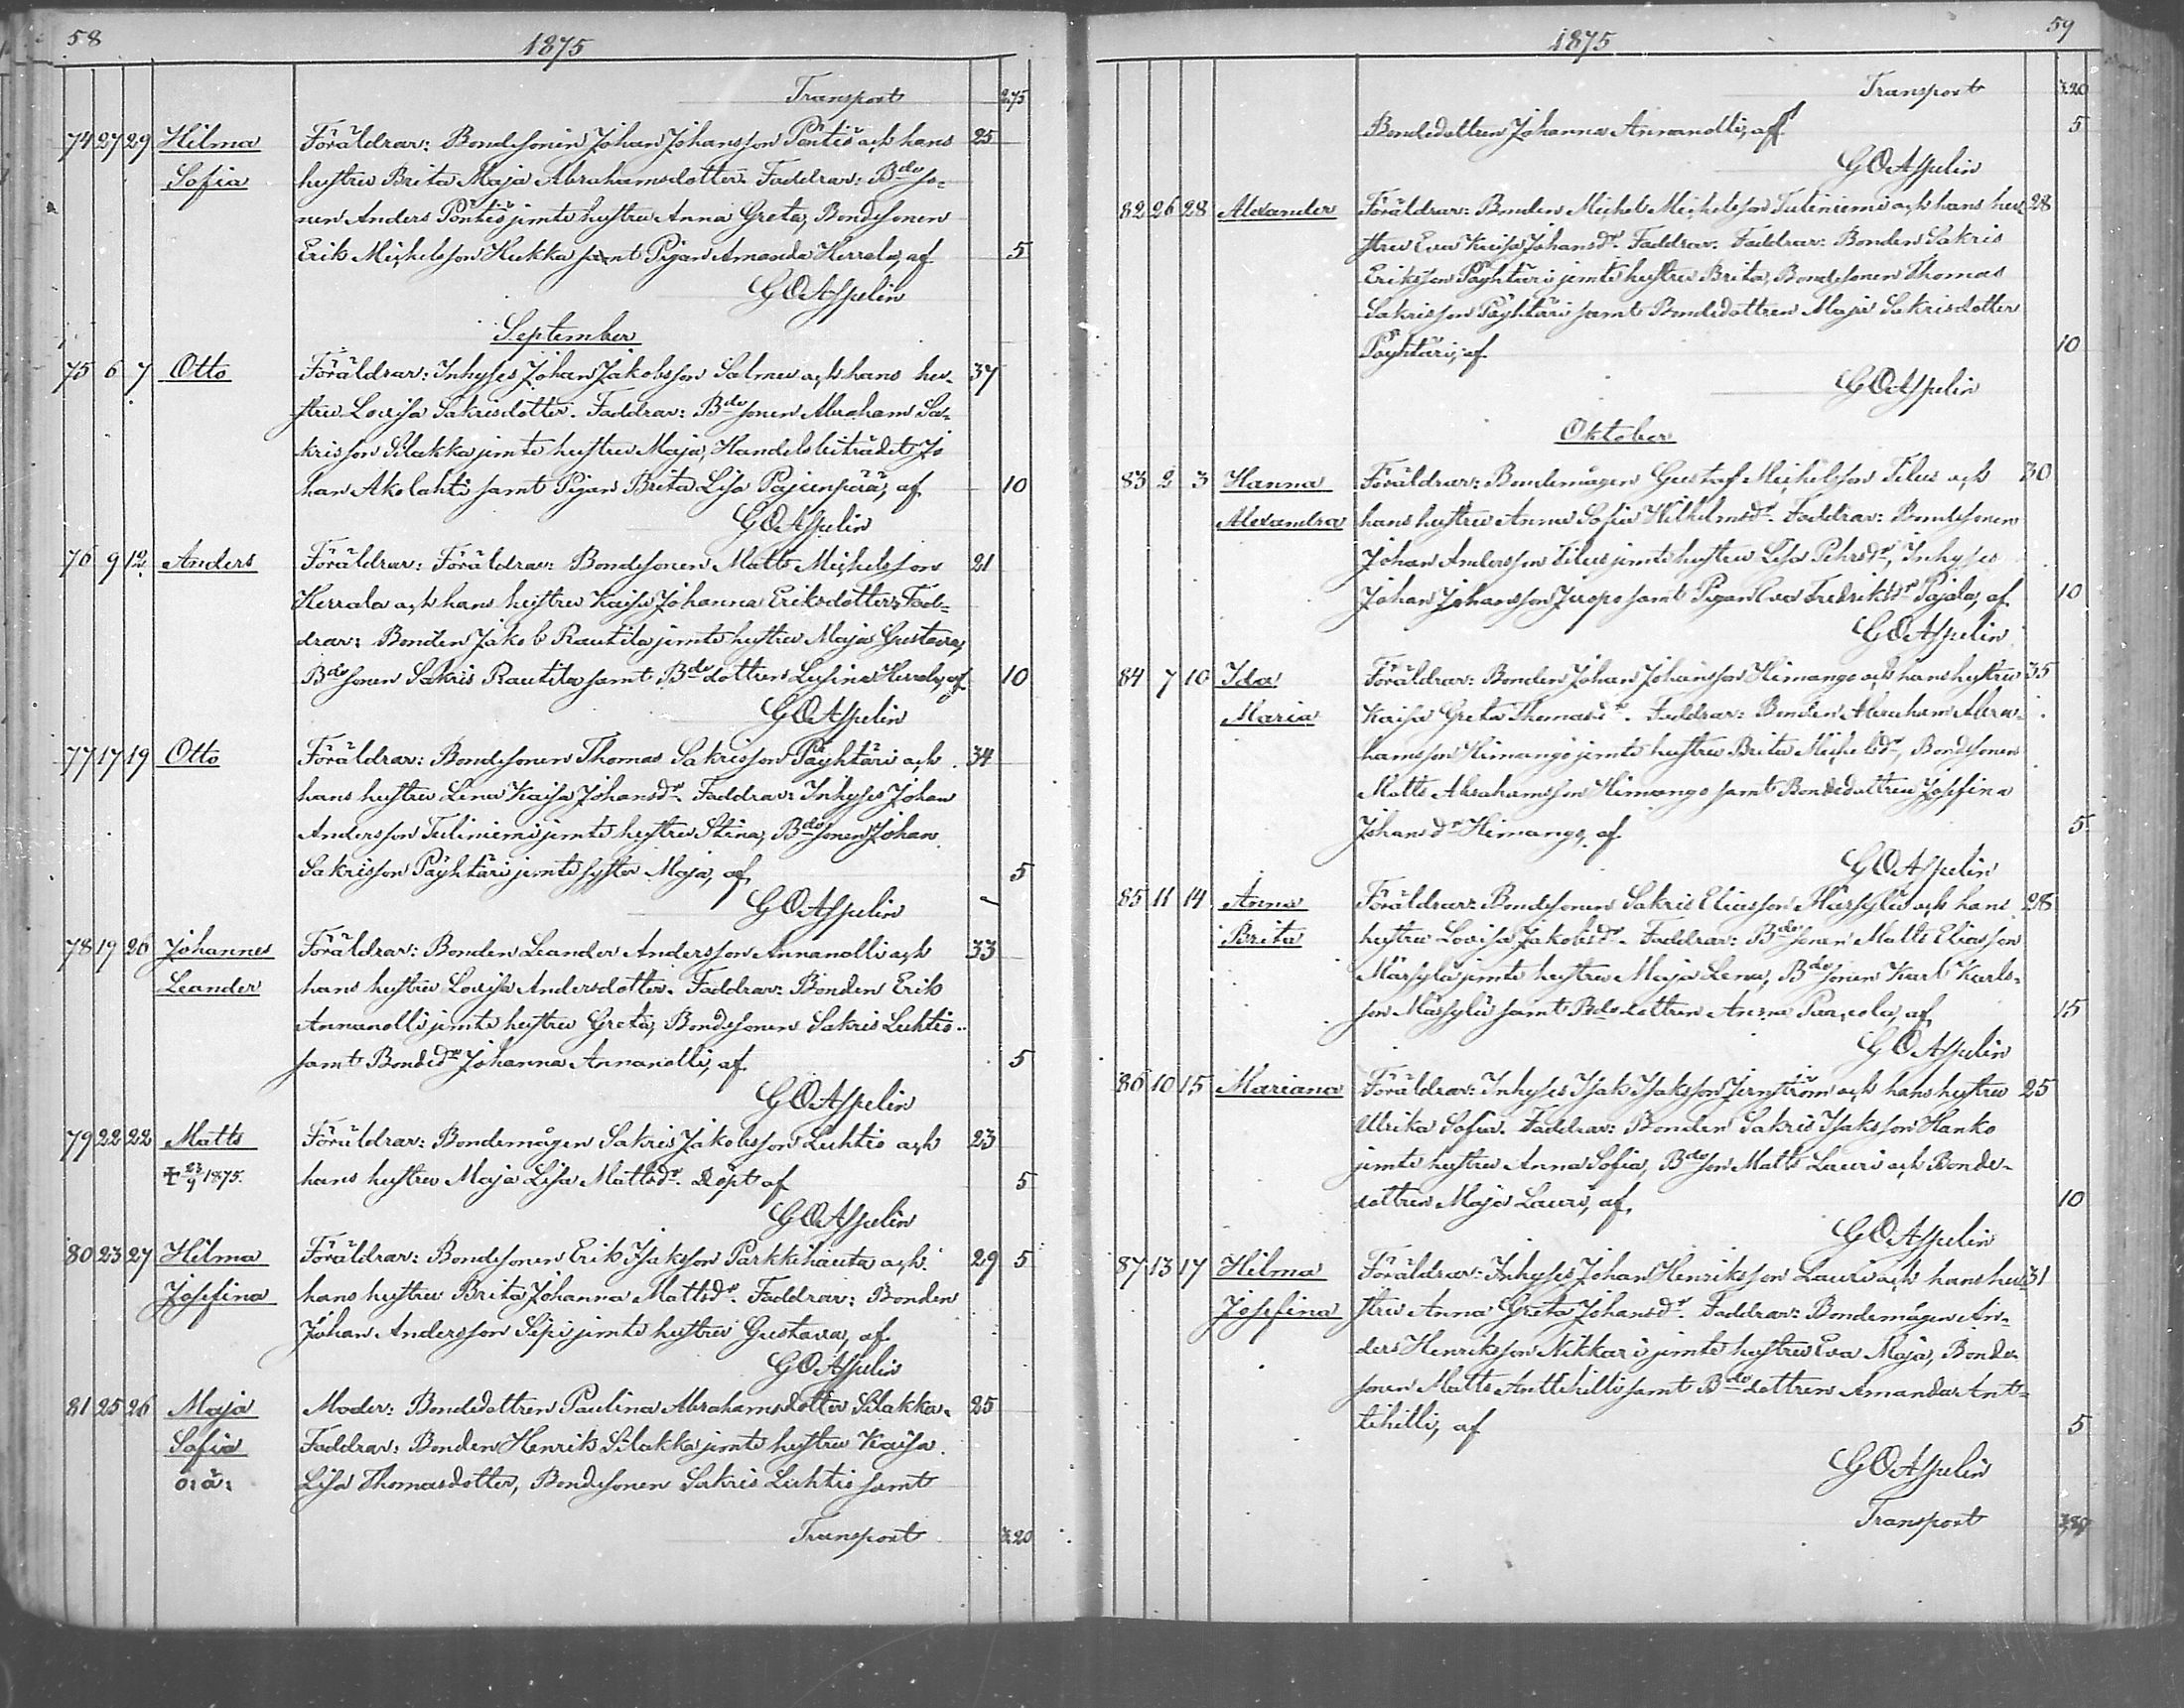 58
1875
Transport 2,75
74 27 29 Hilma Föräldrar: Bondesonen Johan Johansson Pöntiö och hans 25
Sofia hustru Brita Maja Abrahamsdotter. Faddrar: Bdeso-
nen Anders Pöntiö jemte hustru Anna Greta, Bondesonen
Erik Michelsson Hukka samt Pigan Amanda Herrala, af 5
GOAspelin
September
75 6 7 Otto Föräldrar: Inhyses Johan Jakobsson Salmu och hans hu- 37
stru Lovisa Sakrisdotter. Faddrar: Bdesonen Abraham Sa-
krisson Silakka jemte hustru Maja, Handelsbiträdet Jo
han Akolahti samt Pigan Brita Lisa Pajunpää, af 10
GOAspelin
76 9 12 Anders Föräldrar: Föräldrar: Bondesonen Matts Michelsson 21
Herrala och hans hustru Kaisa Johanna Eriksdotter. Fad-
drar: Bonden Jakob Rautila jemte hustru Maja Gustava,
Bdesonen Sakris Rautila samt Bdedottren Lusina Herrala, af 10
GOAspelin
77 17 19 Otto Föräldrar: Bondesonen Thomas Sakrisson Pöyhtäri och 34
hans hustru Lena Kaisa Johansdr. Faddrar: Inhyses Johan
Andersson Tuliniemi jemte hustru Stina, Bdesonen Johan
Sakrisson Pöyhtäri jemte syster Maja, af 5
GOAspelin
78 19 26 Johannes Föräldrar: Bonden Leander Andersson Annanolli och 33
Leander hans hustru Lovisa Andersdotter. Faddrar: Bonden Erik
Annanolli jemte hustru Greta, Bondesonen Sakris Luhtio
samt Bondedr Johanna Annanolli, af 5
GOAspelin
79 22 22 Matts Föräldrar: Bondemågen Sakris Jakobsson Luhtio och 23
† 23/9 1875. hans hustru Maja Lisa Mattsdr. Döpt af 5
GOAspelin
80 23 27 Hilma Föräldrar: Bondesonen Erik Isaksson Parkkihauta och 29 5
Josefina hans hustru Brita Johanna Mattsdr. Faddrar: Bonden
Johan Andersson Sipi jemte hustru Gustava, af
GOAspelin
81 25 26 Maja Moder: Bondedottren Paulina Abrahamsdotter Silakka. 25
Sofia Faddrar: Bonden Henrik Silakka jemte hustru Kaisa
o:ä: Lisa Thomasdotter, Bondesonen Sakris Luhtio samt
Transport 3,20
59
1875
Transport 3,20
Bondedottren Johanna Annanolli, af 5
GOAspelin
82 26 28 Alexander Föräldrar: Bonden Michel Michelsson Tuliniemi och hans hu- 28
stru Eva Kaisa Johansdr. Faddrar: Faddrar: Bonden Sakris
Eriksson Pöyhtäri jemte hustru Brita, Bondesonen Thomas
Sakrisson Pöyhtäri samt Bondedottren Maja Sakrisdotter
Pöyhtäri, af 10
GOAspelin
Oktober
83 2 3 Hanna Föräldrar: Bondemågen Gustaf Michelsson Tilus och 30
Alexandra hans hustru Anna Sofia Wilhelmsdr. Faddrar: Bondesonen
Johan Andersson Tilus jemte hustru Lisa Pehrsdr, Inhyses
Johan Johansson Juopo samt Pigan Eva Fredriksdr Pajala, af 10
GOAspelin
84 7 10 Ida Föräldrar: Bonden Johan Johansson Himango och hans hustru 35
Maria Kaisa Greta Thomasdr. Faddrar: Bonden Abraham Abra-
hamsson Himango jemte hustru Brita Michelsdr, Bondesonen
Matts Abrahamsson Himango samt Bondedottren Josefina
Johansdr Himango, af 5
GOAspelin
85 11 14 Anna Föräldrar: Bondesonen Sakris Eliasson Märsylä och hans 28
Brita hustru Lovisa Jakobsdr. Faddrar: Bdesonen Matts Eliasson
Märsylä jemte hustru Maja Lena, Bdesonen Karl Karls-
son Märsylä samt Bdedottren Anna, af 15
GOAspelin
86 10 15 Mariana Föräldrar: Inhyses Isak Isaksson Jernström och hans hustru 25
Ulrika Sofia. Faddrar: Bonden Sakris Isaksson Hanko
jemte hustru Anna Sofia, Bdeson Matts Lauri och Bonde-
dottren Maja Lauri, af 10
GOAspelin
87 13 17 Hilma Föräldrar: Inhyses Johan Henriksson Lauri och hans hu- 31
Josefina stru Anna Greta Johansdr. Faddrar: Bondemågen An-
ders Henriksson Nikkari jemte hustru Eva Maja, Bonde-
sonen Matts Anttihilli samt Bdedottren Amanda Ant-
tihilli, af 5
GOAspelin
Transport